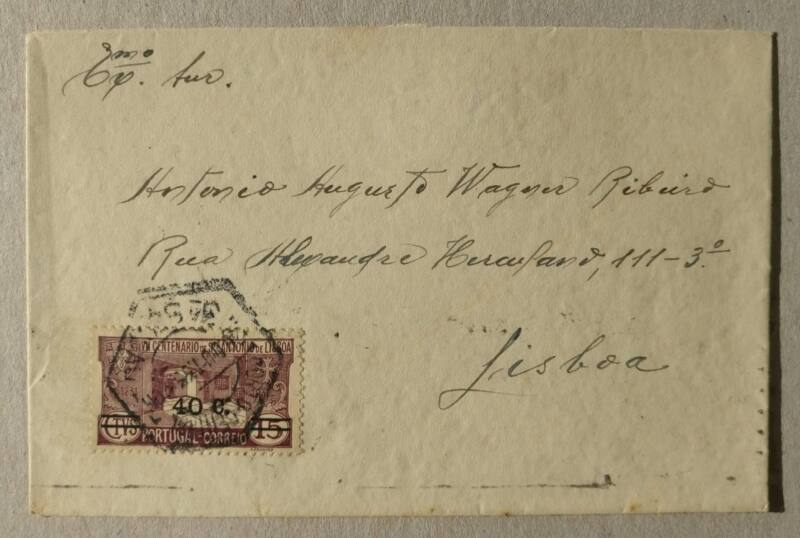 Exmo. Snr.
Antonio Augusto Wagner Ribeiro
Rua Alexandre Herculano, 111-3º
Lisboa
VII CENTENARIO DE STO ANTONIO DE LISBOA
40 C.
CTVS 15
PORTUGAL-CORREIO